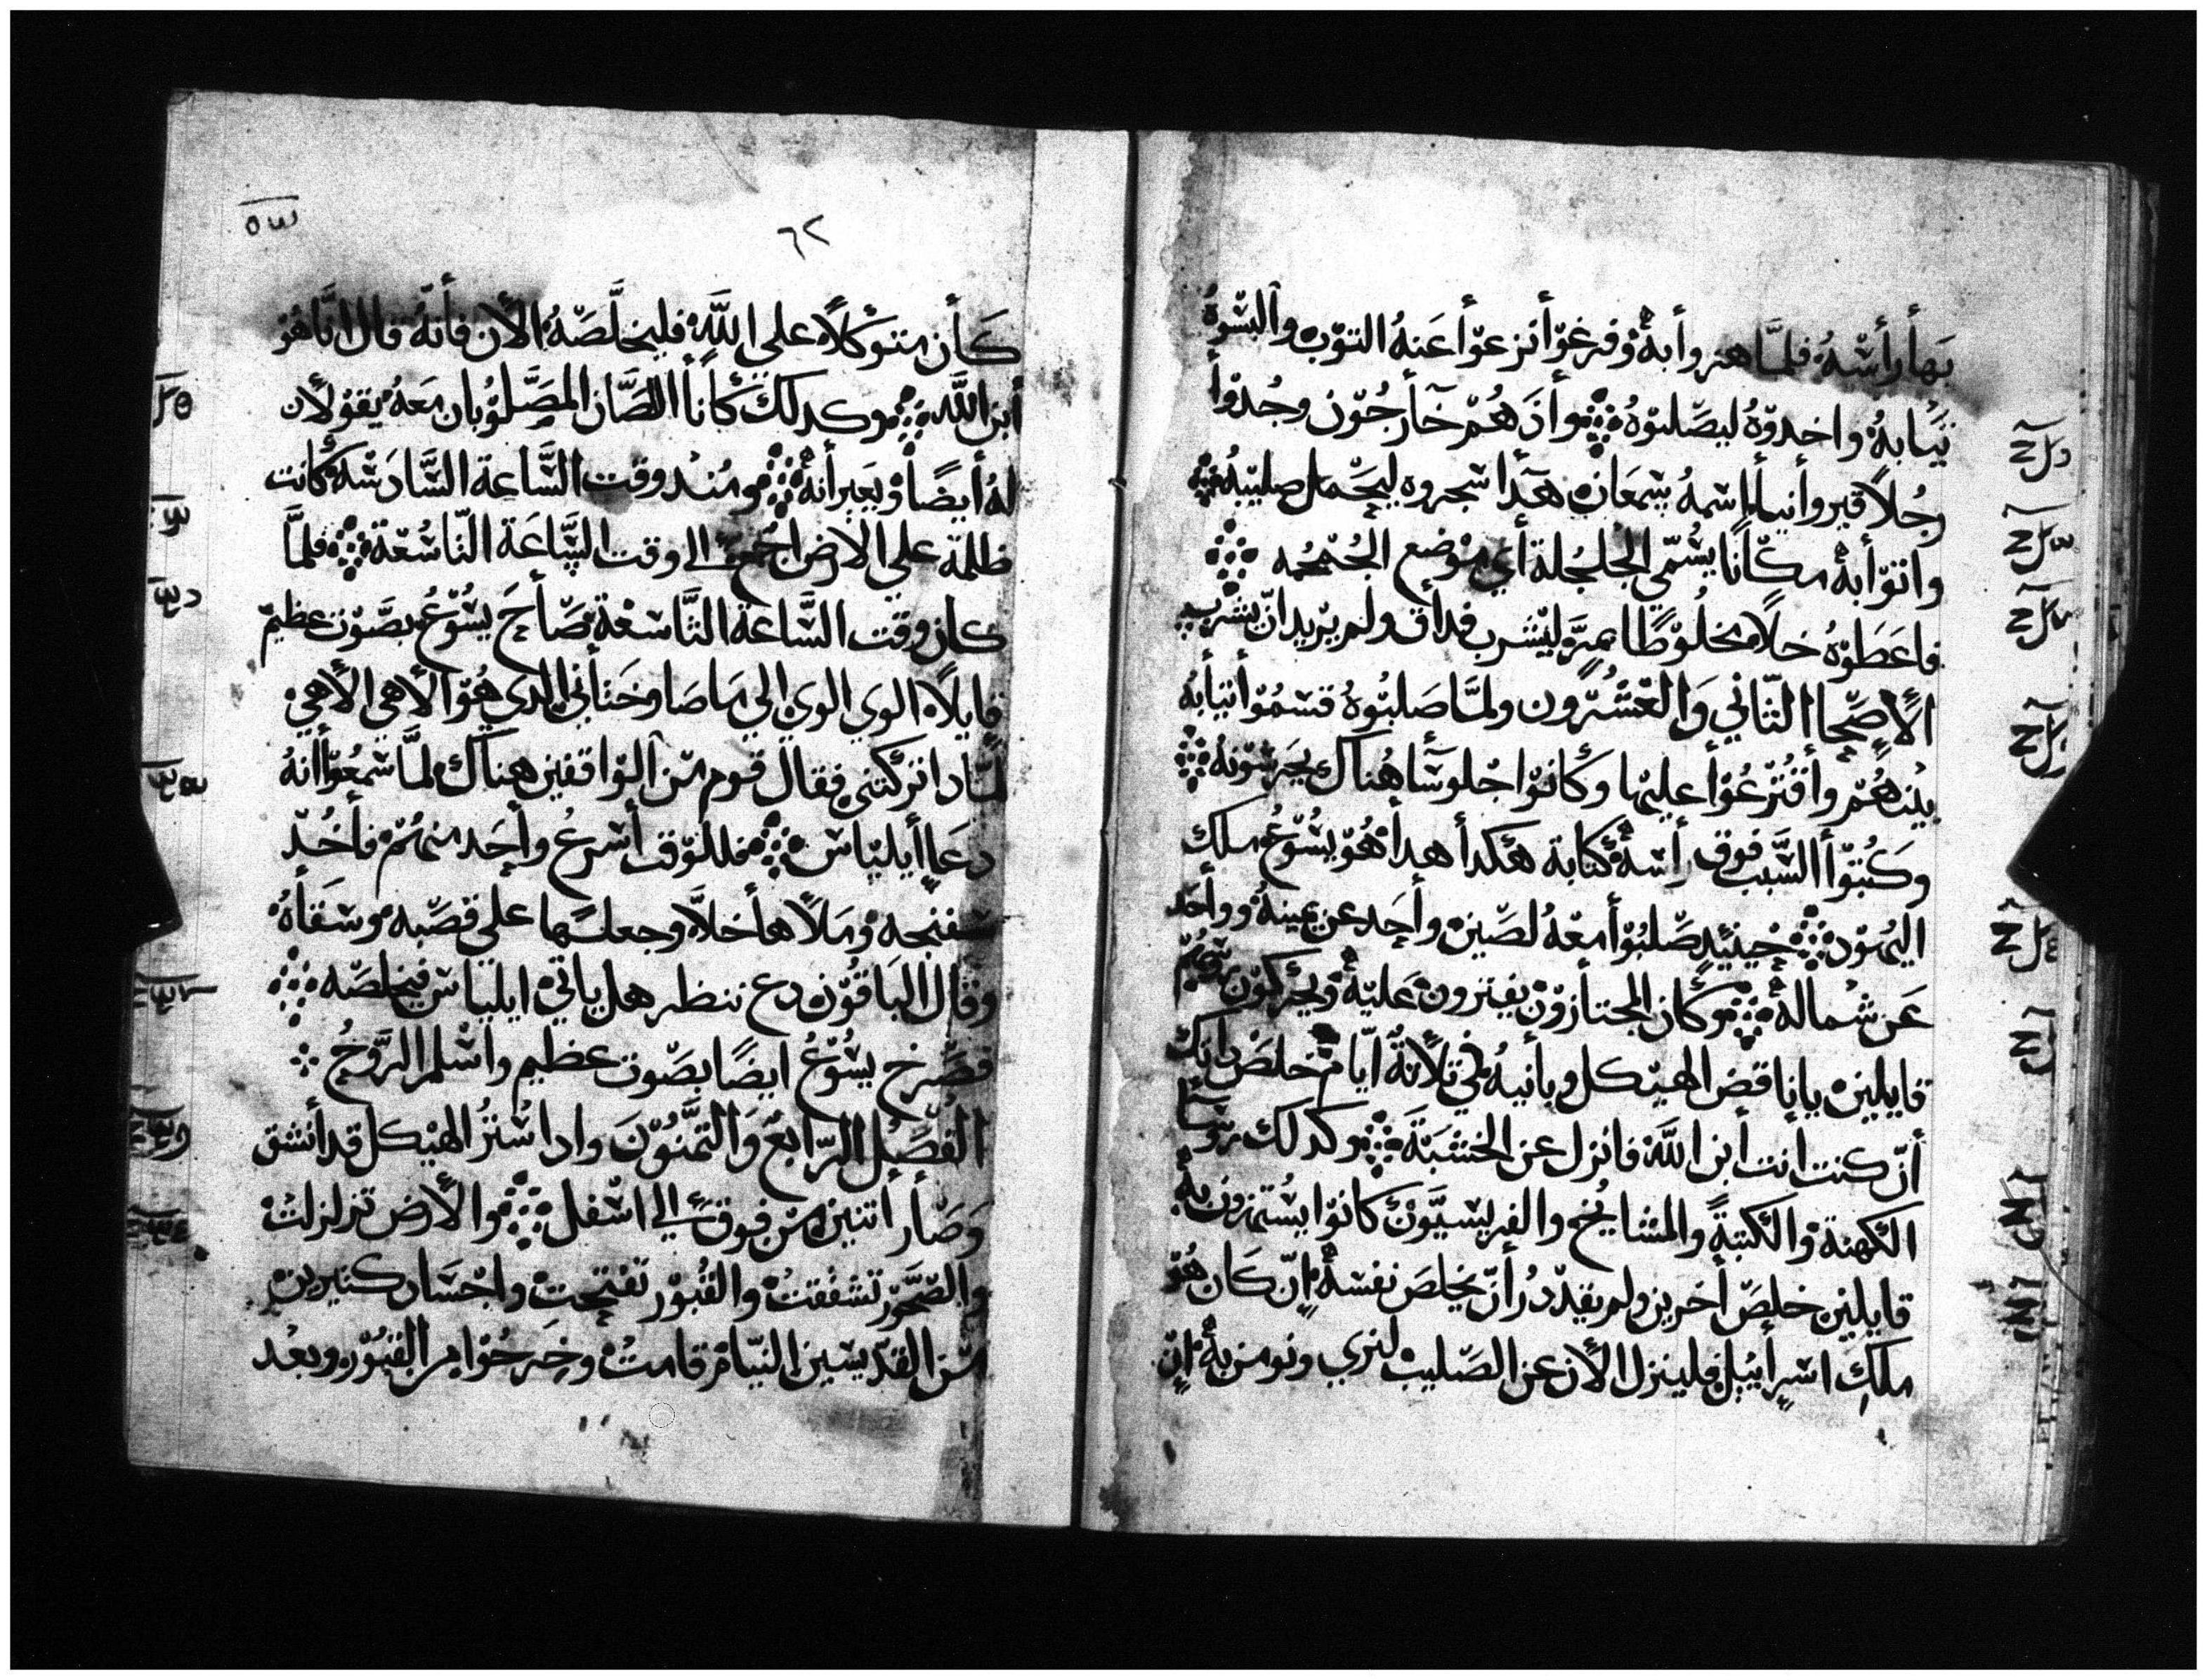 بهأ رأسْهُ فلمَّا هزوأ بهْ وفرغوّأ أنزعوّأ عَنهُ التوّب وألبسّوهُ
تيَابهُ واخدوّهُ ليصَلبوّهُ وأدَ هُمّ خآرجُوّن وجُدوّأ
رجُلاً قيروأنياً إسْمهُ سِمعَان هَدأ سَخروه ليحَمل صليبهُ
واتوّأ بهْ مكَاناً يسُمّى الجلجُلة أي موْضع الجُمجُمه
فاعَطوْهُ خلاً مخلُوّطًا بمرّ ليَشرب فدأق ولم يرْيد انّ يشرب
الأصِحَاح التّاني وَالعَشُرون ولمَّا صَلبُوهُ قسَمُوّأ تيابهُ
بينهُمّ وأقتُرْعُوّأ عليْها وكَانوّا جلوسًآ هُناك يحَرسْوّنهُ
وكتبُوّأ السَّبب فوق رأسهْ كتابة هَكدأ هدأ هُوّ يسُوّعُ ملك
اليُهوّد حِينيِد صَلبُوّأ معَهُ لصَين وأحَد عن يمينهُ وأحَد
عَن شمالهْ وكَان المجتأزوّن يفترون عَليهْ ويحَركوّن روُسهمّ
قايلين يا ناقض الهيْكل وبانيهُ في تلاتهْ ايّام خلصّ داتك
أنّ كنت أنت أبن اللَّه فانزل عن الخشبَة وكدلك روّسآ
الكَهنة والكتبةَ والمشايخ والفريسيَّوّن كانوّا يسُتهزون بهْ
قايلين خلصّ أخرين ولم يقدّرُ أنّ يخلصَ نفسَهْ إنّ كَان هُوّ
ملك اسرأييل فلينزل الأن عن الصّليب لنري ونومن بهْ إنّ
٦٢
كَأن متوَكلاً علي اللَّه فليخلَّصَهُ الأن فأنهُ قال انَّا هُوّ
أبن اللَّه وكدلك كَاناً اللصَّان المصَّلوُبان معَهُ يقوْلان
لهُ أيضًا ويعَيرأنهْ ومُند وقت السَّاعة السَّادسْة كَانت
ظلمة علي الارض جميع الى وقت السَّاعَة التّاسُعة فلمَّا
كان وقت السَّاعَة التَّاسعْة صَأحَ يسُوّعُ بصَوّت عظيمّ
قايلاً الوي الوي إلي مَا صَا وختأني الدي هُوّ الاهي الأهي
لمَّادا تركتني فقال قوم منّ الوّاقفين هناك لمَّا سمعُوّأ أنهُ
دعَا إيليَاس فللوّقت أسْرعُ وأحَد منهُمّ فأخُدّ
سفنجه ومَلأهأ خلاَّ وجعلهَا علي قصَبه وسَقأهُ
وقال البَاقوّن دع ننظر هل ياتي ايليَاس فيخلصَه
فصَرخ يسُوّعُ ايضًا بصَوّت عظيم وأسْلم الرَّوّحُ
الفُصَل الرّابعَ وَالتمَّنوُّنَ وادا سُترُ الهيْكل قد أنشق
وَصَأر أتنين منّ فوقَ الي اسْفل والأرض تزلزلتْ
والصَّخوّر تشققتْ والقُبوّر تفتحتْ وأجْسَاد كتيرين
منّ القدّيسْين النيَّام قامتْ وخرجُوّا من القبُوّر وبعُد